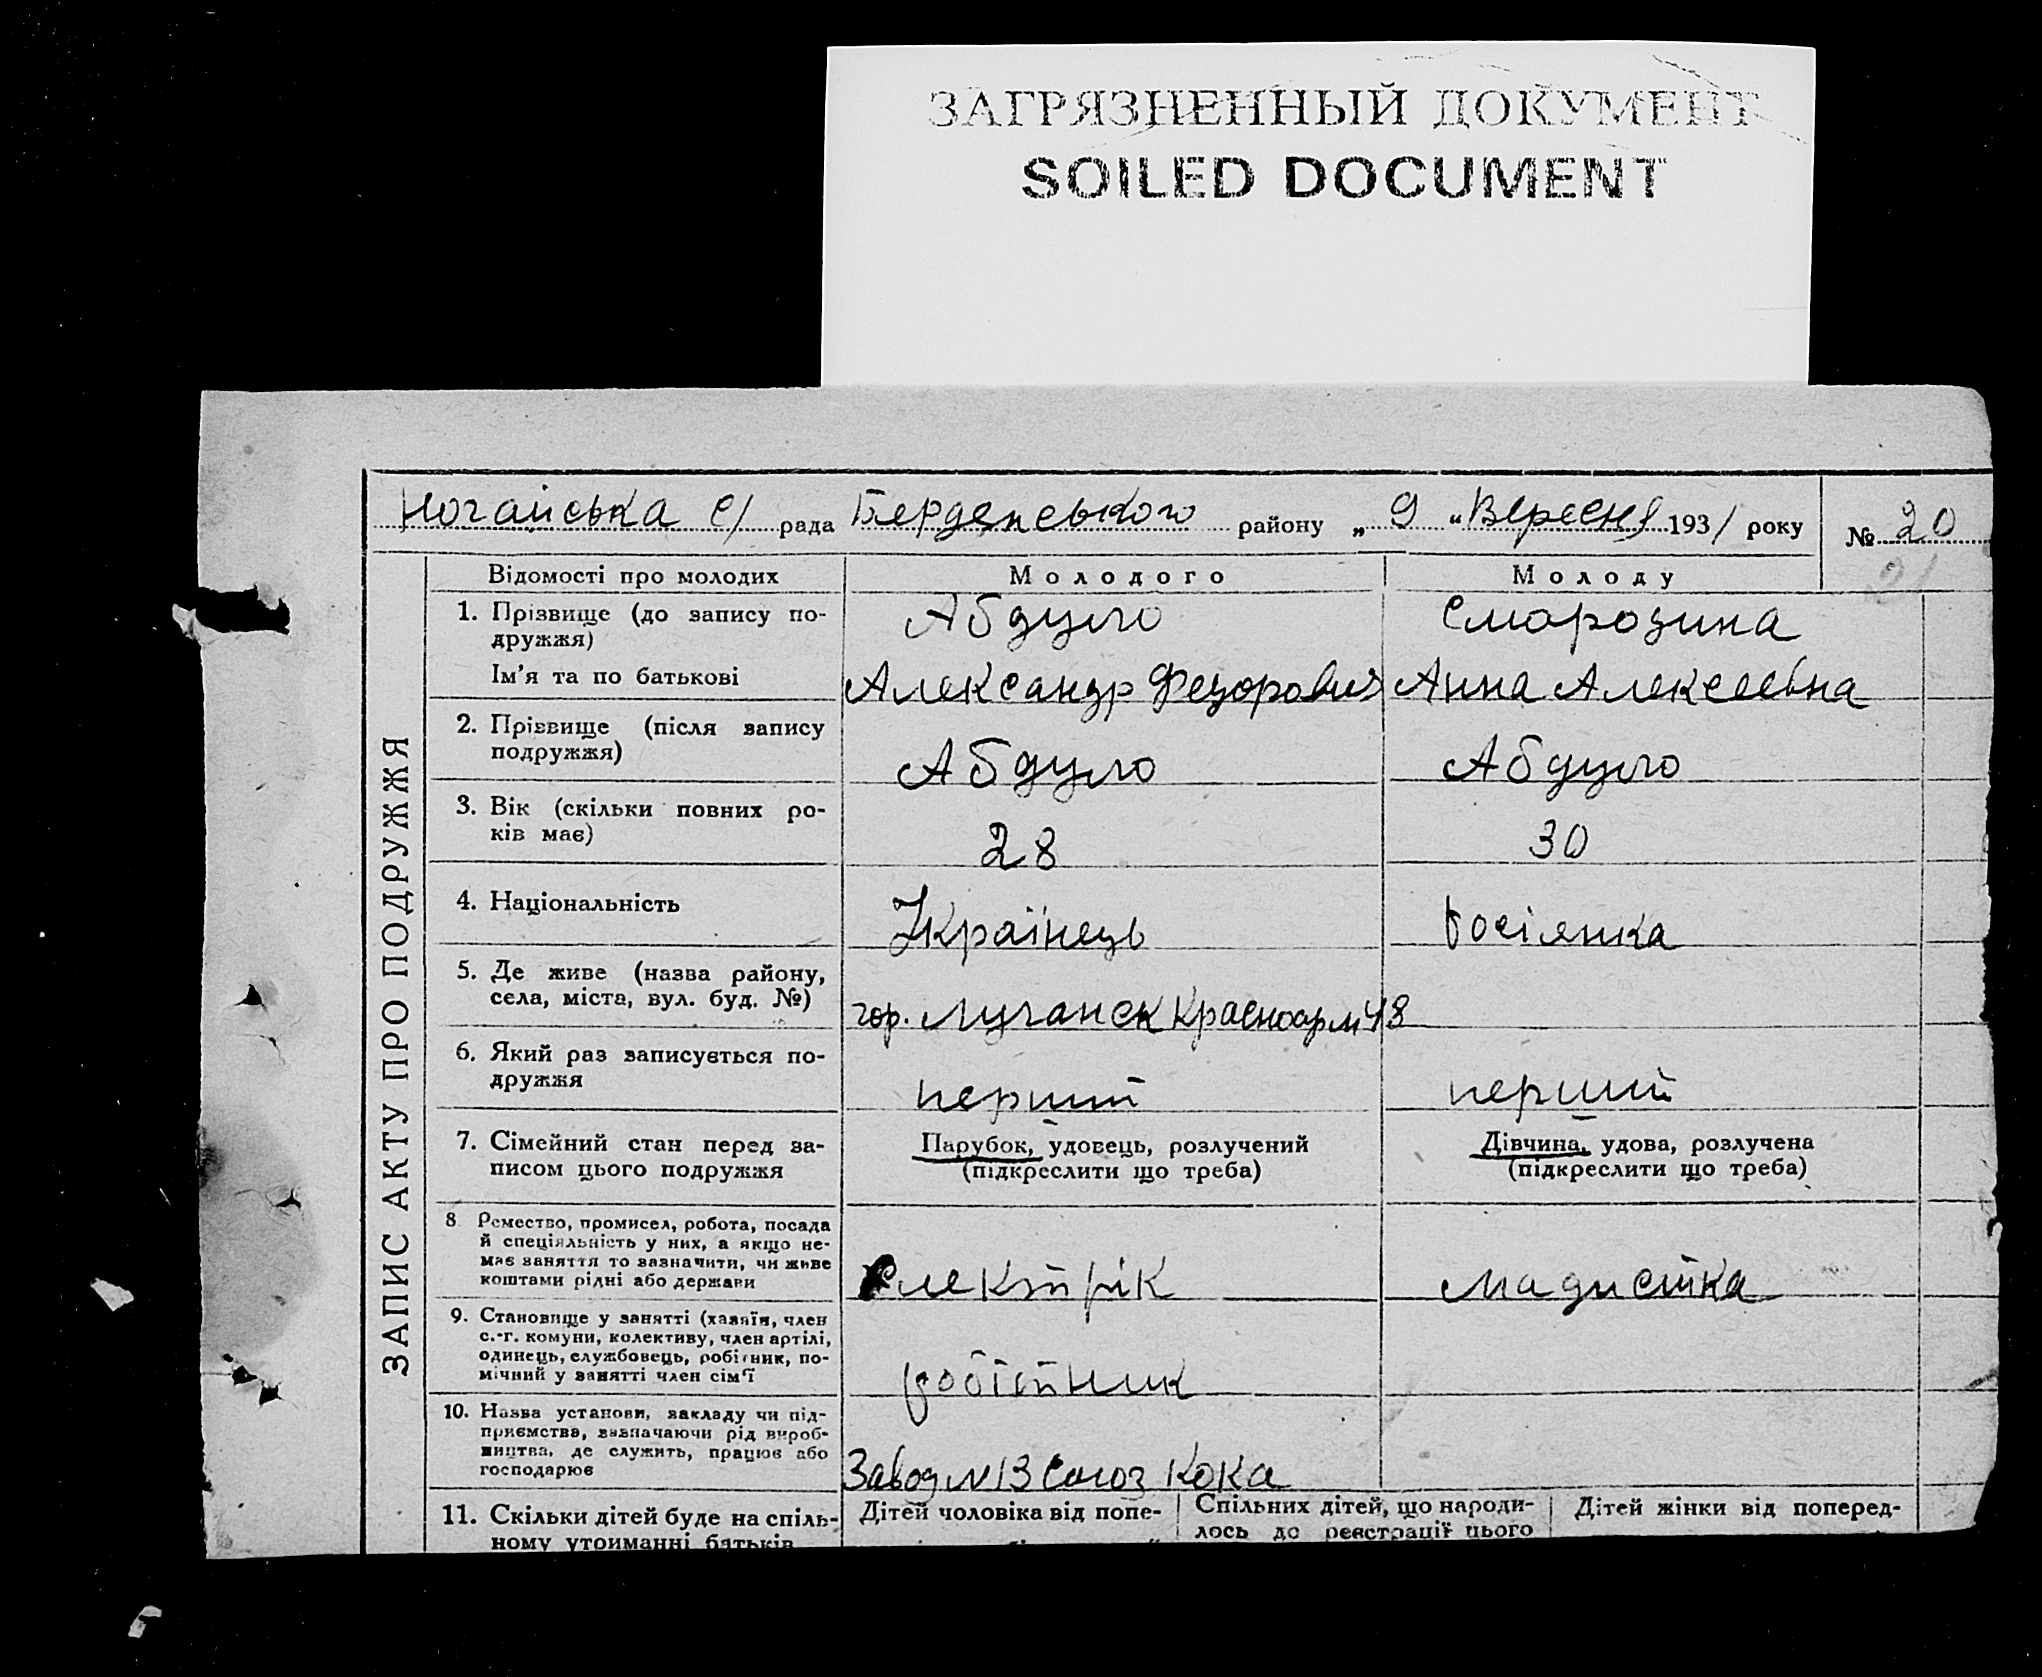 ЗАГРЯЗНЕННЫЙ ДОКУМЕНТ
SOILED DOCUMENT
Ногайська с/ рада Берденського району „ 9 “ Вересня 1931 року № 20
21
ЗАПИС АКТУ ПРО ПОДРУЖЖЯ
Відомості про молодих Молодого Молоду
1. Прізвище (до запису по-
дружжя) Абдуло Смородина
Ім'я та по батькові Александр Федорович Анна Алексеевна
2. Прізвище (після запису
подружжя) Абдуло Абдуло
3. Вік (скільки повних ро-
ків має) 28 30
4. Національність Українець росіянка
5. Де живе (назва району,
села, міста, вул. буд. №) гор. Луганск Красноарм 48
6. Який раз записується по-
дружжя перший перший
7. Сімейний стан перед за- Парубок, удовець, розлучений Дівчина, удова, розлучена
писом цього подружжя (підкреслити що треба) (підкреслити що треба)
8 Ремество, промисел, робота, посада
й спеціяльність у них, а якщо не-
має заняття то зазначити, чи живе
коштами рідні або держави електрік мадистка
9. Становище у занятті (хазяїн, член
с.-г. комуни, колективу, член артілі,
одинець, службовець, робітник, по-
мічний у занятті член сім'ї робітник
10. Назва установи, закладу чи під-
приємства, зазначаючи рід вироб-
ництва, де служить, працює або
господарює Завод N 13 Союз Кока
11. Скільки дітей буде на спіль- Дітей чоловіка від попе- Спільних дітей, що народи- Дітей жінки від поперед-
ному утриманні батьків лось до реєстрації цього